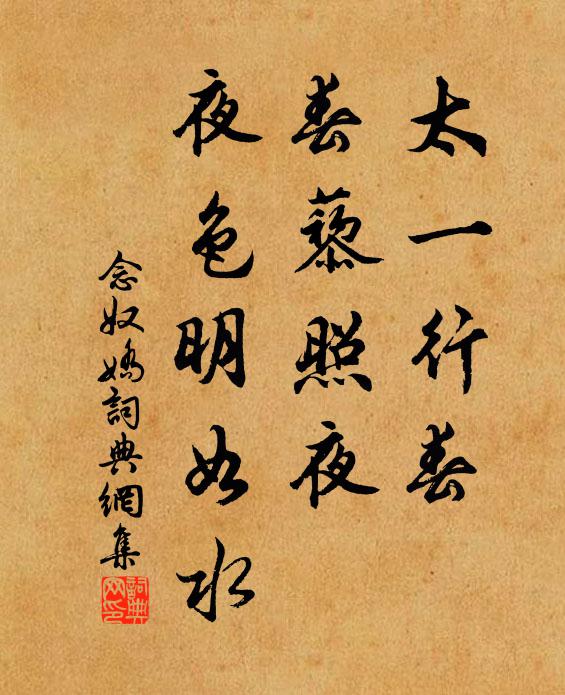 太一行春
春藜照夜
夜色明如水
念奴嬌詞典網集
詞典
网印